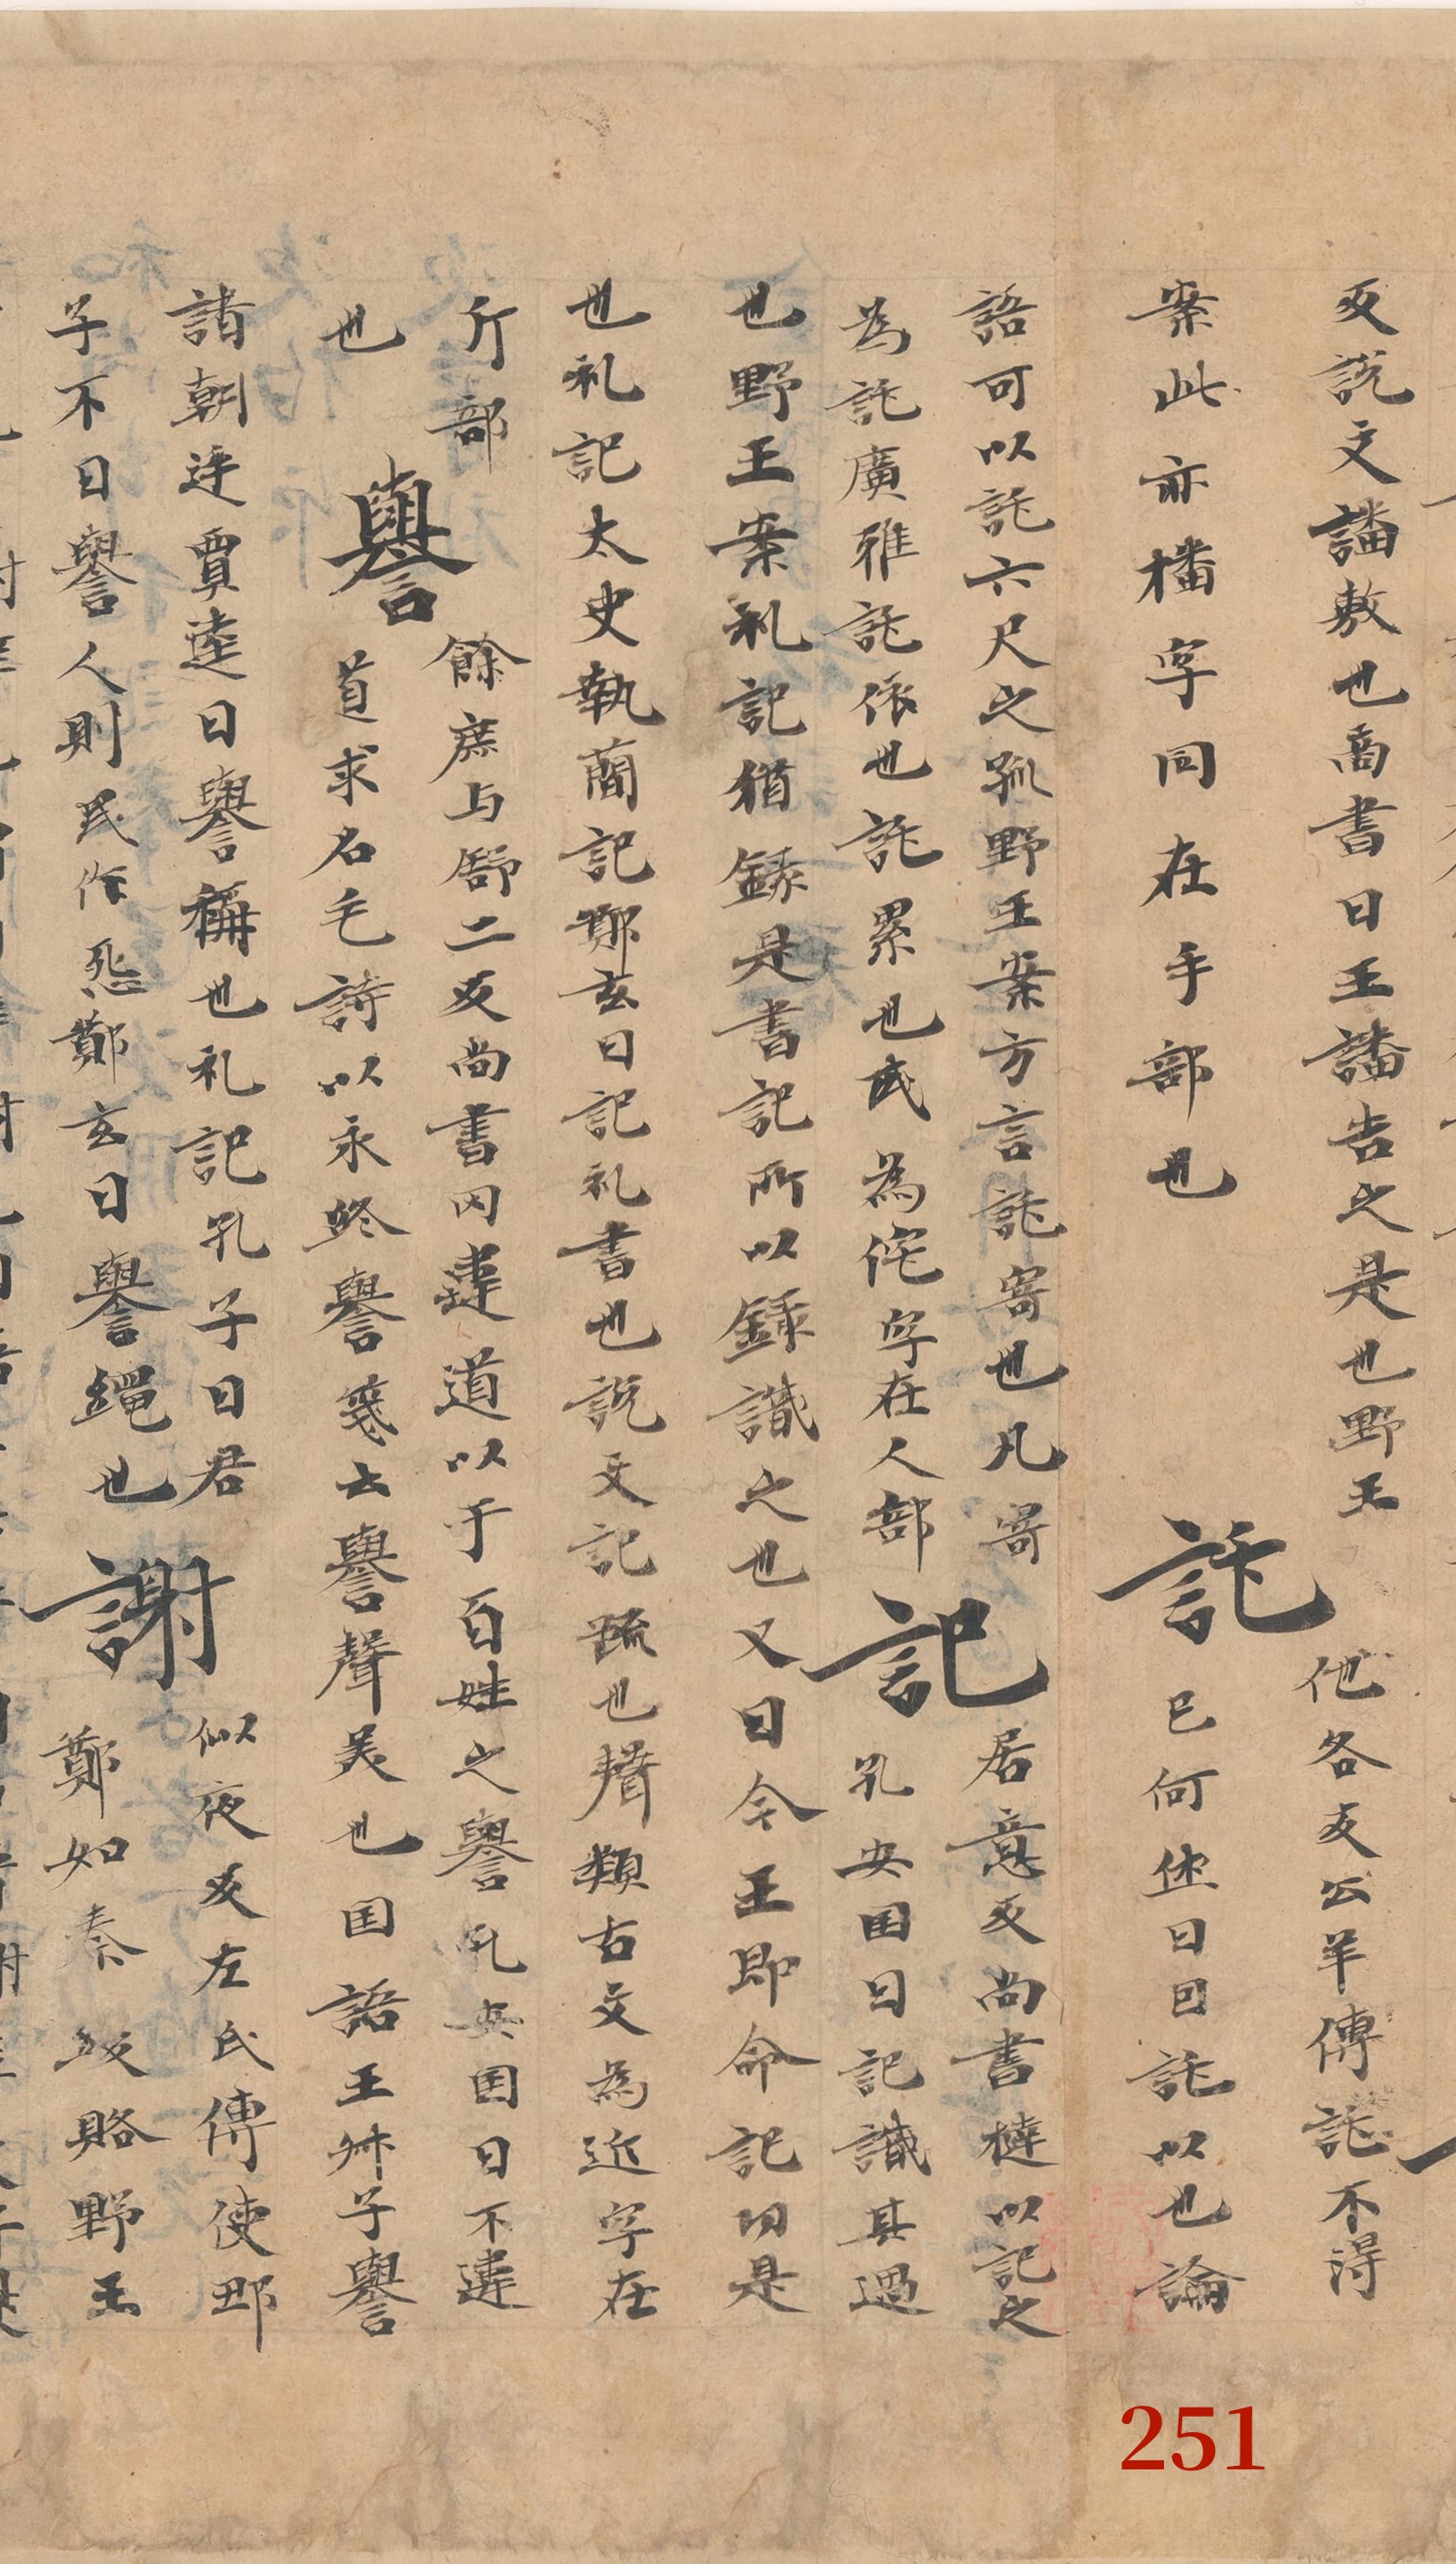 反說文譒敷也商書曰王譒告之是也野王
案此亦播字同在手部也
託
他各反公羊傳託不得
已何休曰曰託以也論
語可以託六尺之孤野王案方言託寄也凡寄
為託廣雅託依也託累也或為侂字在人部
記
居意反尚書撻以記之
孔安国曰記識其過
也野王案礼記猶錄是書記所以錄識之也又曰今王即命記功是
也礼記太史執蕳記鄭玄曰記礼書也說文記疏也聲類古文為近字在
斤部
也
譽
餘庶与舒二反尚書罔違道以于百姓之譽孔安国曰不違
道求名毛詩以永終譽箋云譽聲美也国語王升子譽
諸朝廷賈逵曰譽稱也礼記孔子曰君
子不曰譽人則民作怨鄭玄曰譽繩也
謝
似夜反左氏傳使耶
鄭如秦賂野王
251